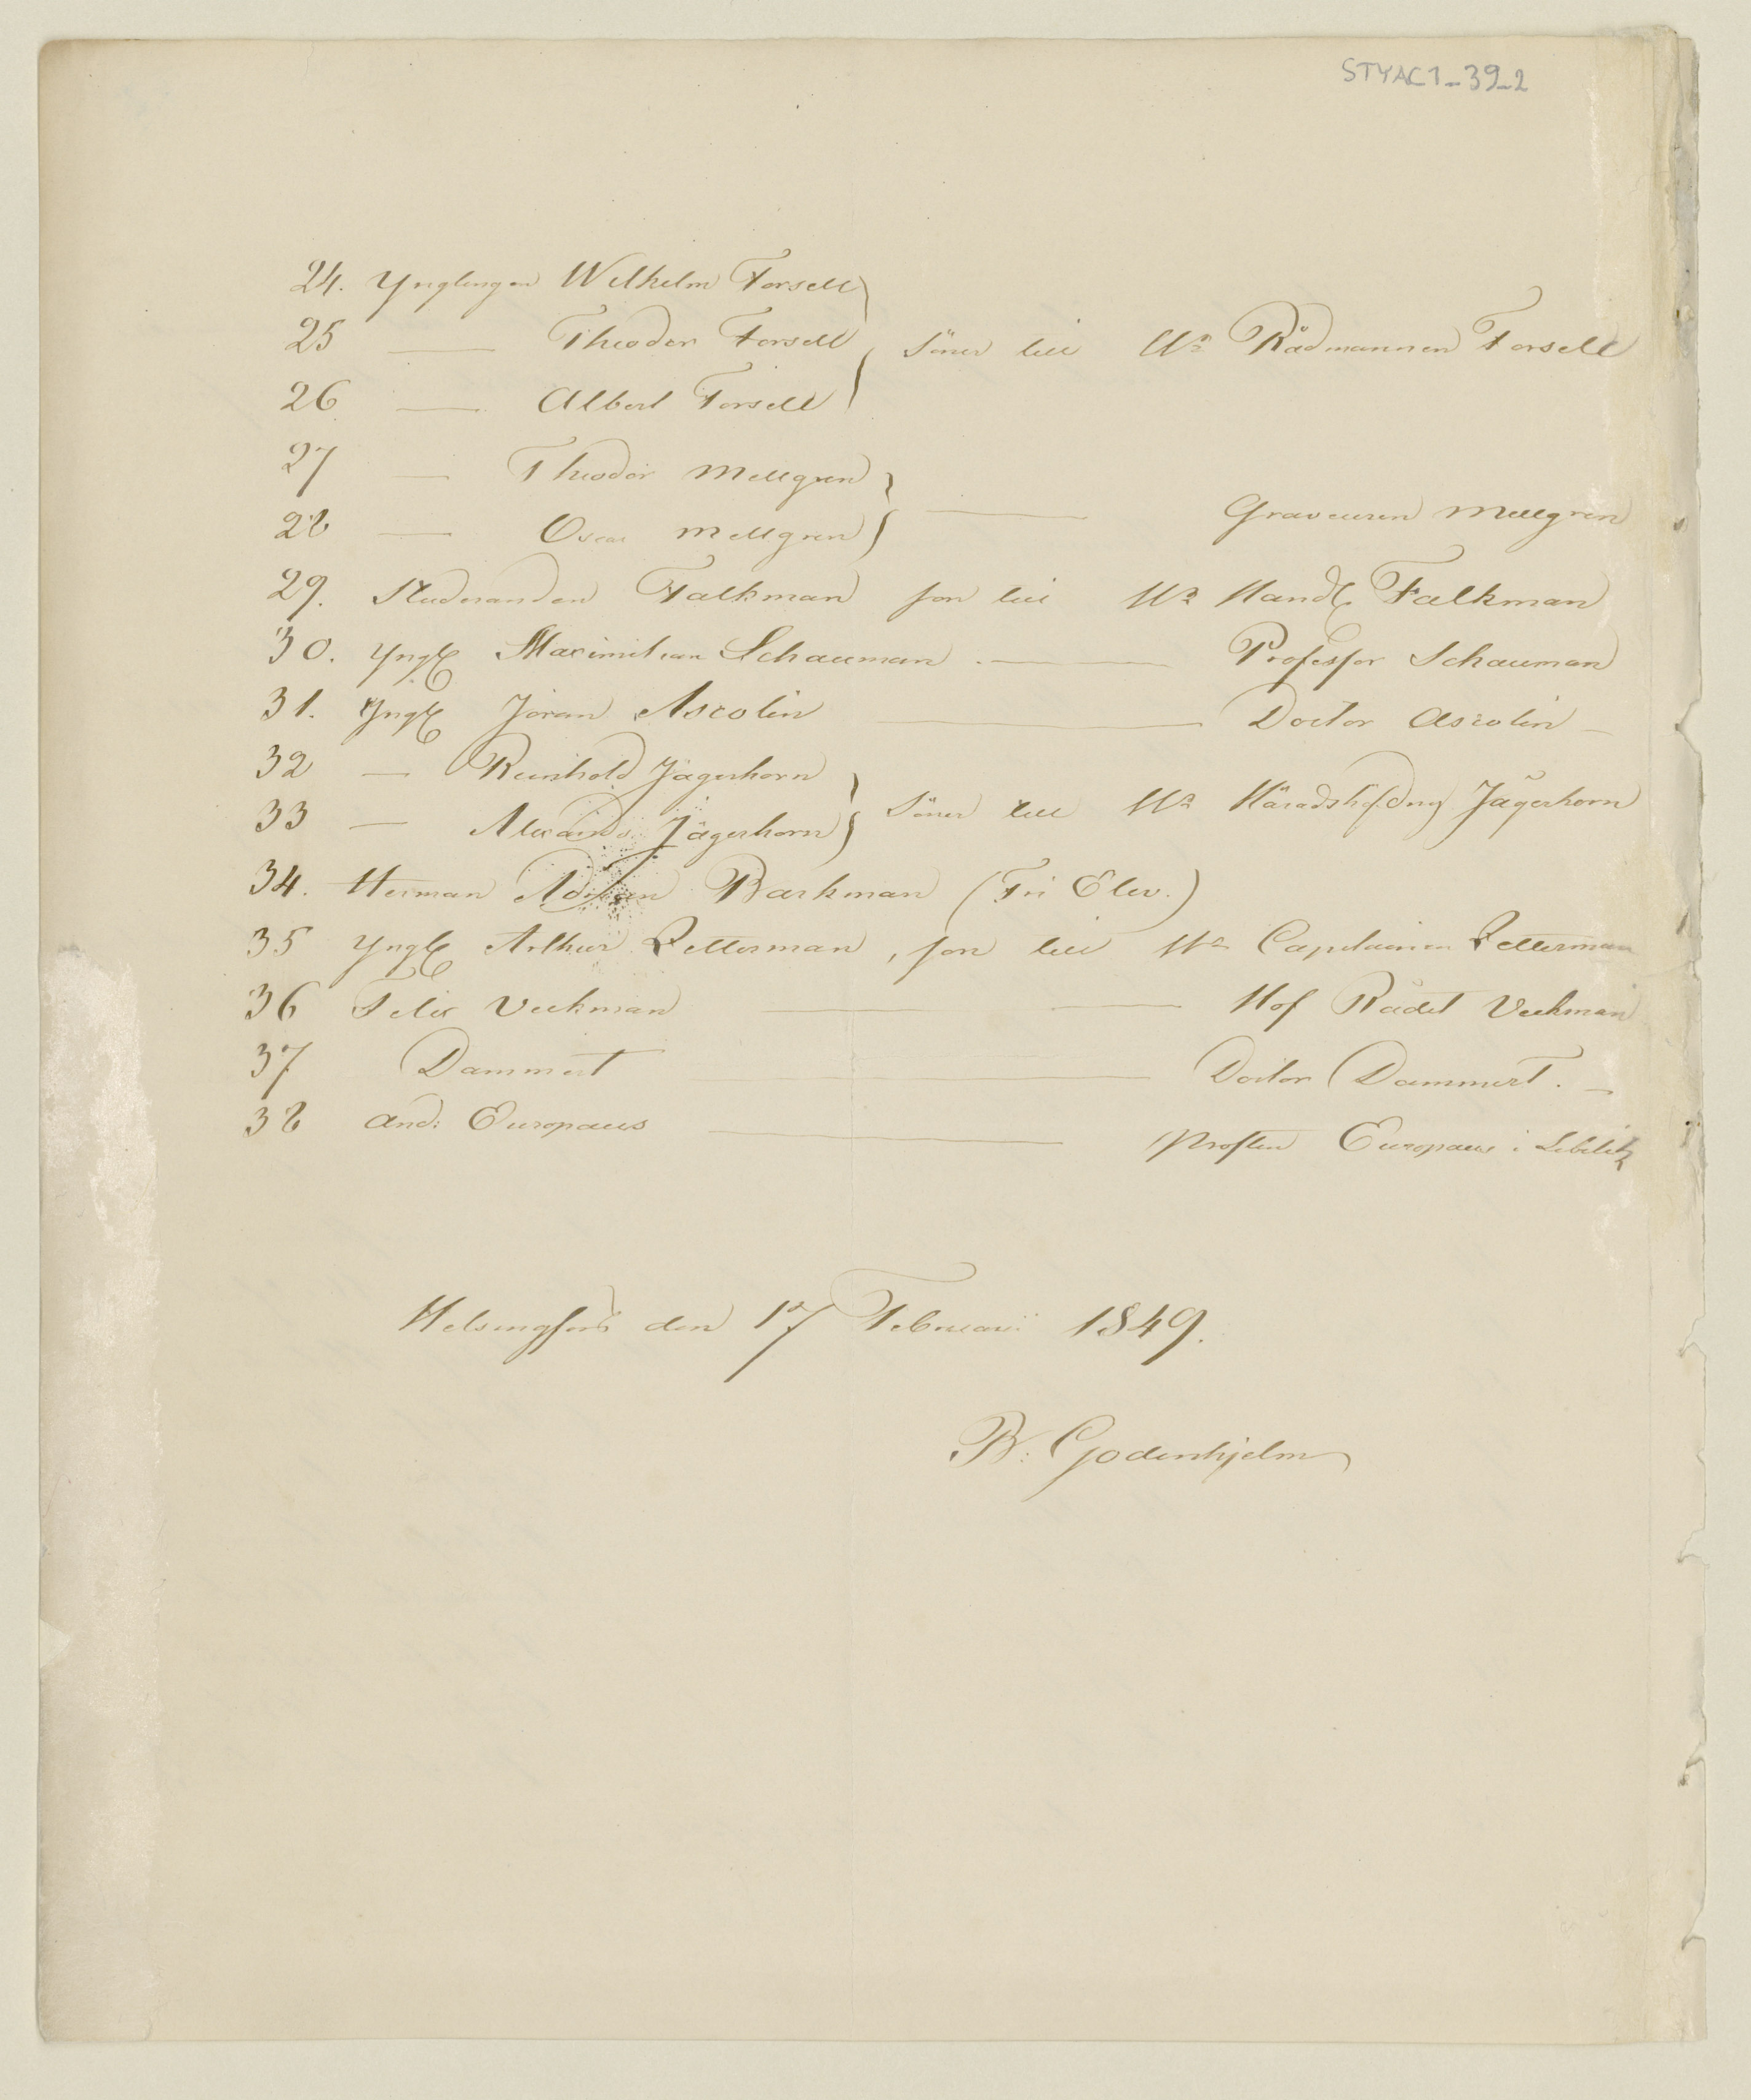 STYAC1_39_2
24. Ynglingen Wilhelm Forsell
25 — Theodor Forsell } Söner till Hr Rådmannen Forsell
26 — Albert Forsell
27 — Theodor Mellgren } — Graveuren Mellgren
28 — Oscar Mellgren
29. Studeranden Falkman son till Hr Handl Falkman
30. Yngl Maximilian Schauman — Professor Schauman
31. Yngl Joran Ascolin — Doctor Ascolin —
32 — Reinhold Jägerhorn } Söner till Hr Häradshöfdng Jägerhorn
33 — Alexand. Jägerhorn
34. Herman Adrian Barkman (Fri Elev.)
35 Yngl Arthur Zetterman, son till Hr Capitainen Zetterman
36 Felix Veckman — — Hof Rådet Veckman
37 Dammert — Doctor Dammert. —
38 And: Europaeus — Prosten Europaeus i Libelitz
Helsingfors den 17 Februari 1849.
B. Godenhjelm